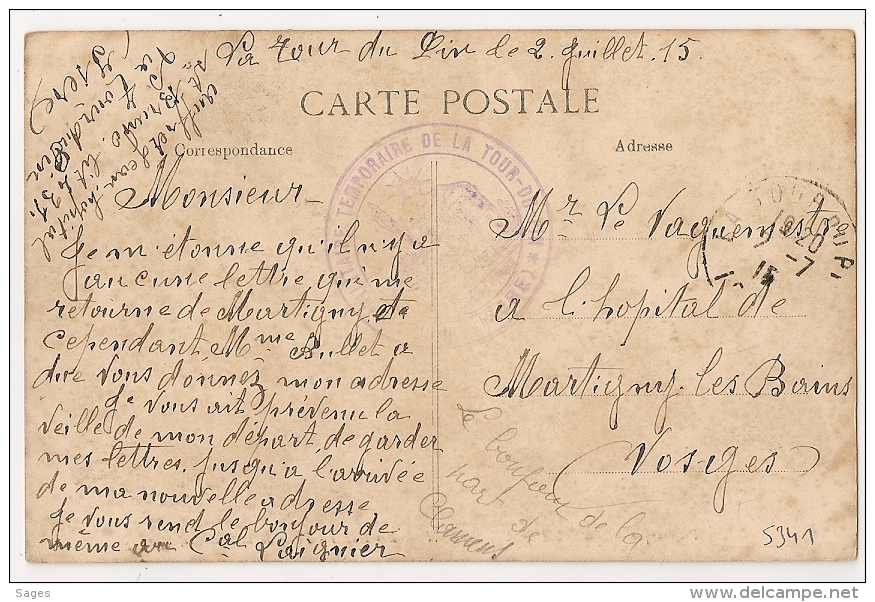 La Tour du Pin le 2. Juillet. 15
CARTE POSTALE
Correspondance
Adresse
Auffret Jean hopital
St Bruno. lit 31.
La Tour du Pin
(Isere)
TEMPORAIRE DE LA TOUR-DU
Monsieur
Je m'étonne qu'il n'y a
aucune lettre qui me
retourne de Martigny
cependant Mme Bullet a
dire vous donnez mon adresse
Je vous ait prévenu la
veille de mon départ de garder
mes lettres, jusqu'a l'arrivée
de ma nouvelle adresse
Je vous rend le bonjour de
même au Cal Laignier
Mr Le Vaguemestre
a l'hopital de
Martigny-les Bains
Vosges
LA TOUR DU PIN
15
Le bonjour de la
part de
Clamens
5341
Sages
delcampe.net